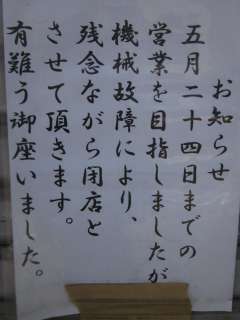 お知らせ
五月二十四日までの
営業を目指しましたが
機械故障により、
残念ながら閉店と
させて頂きます。
有難う御座いました。